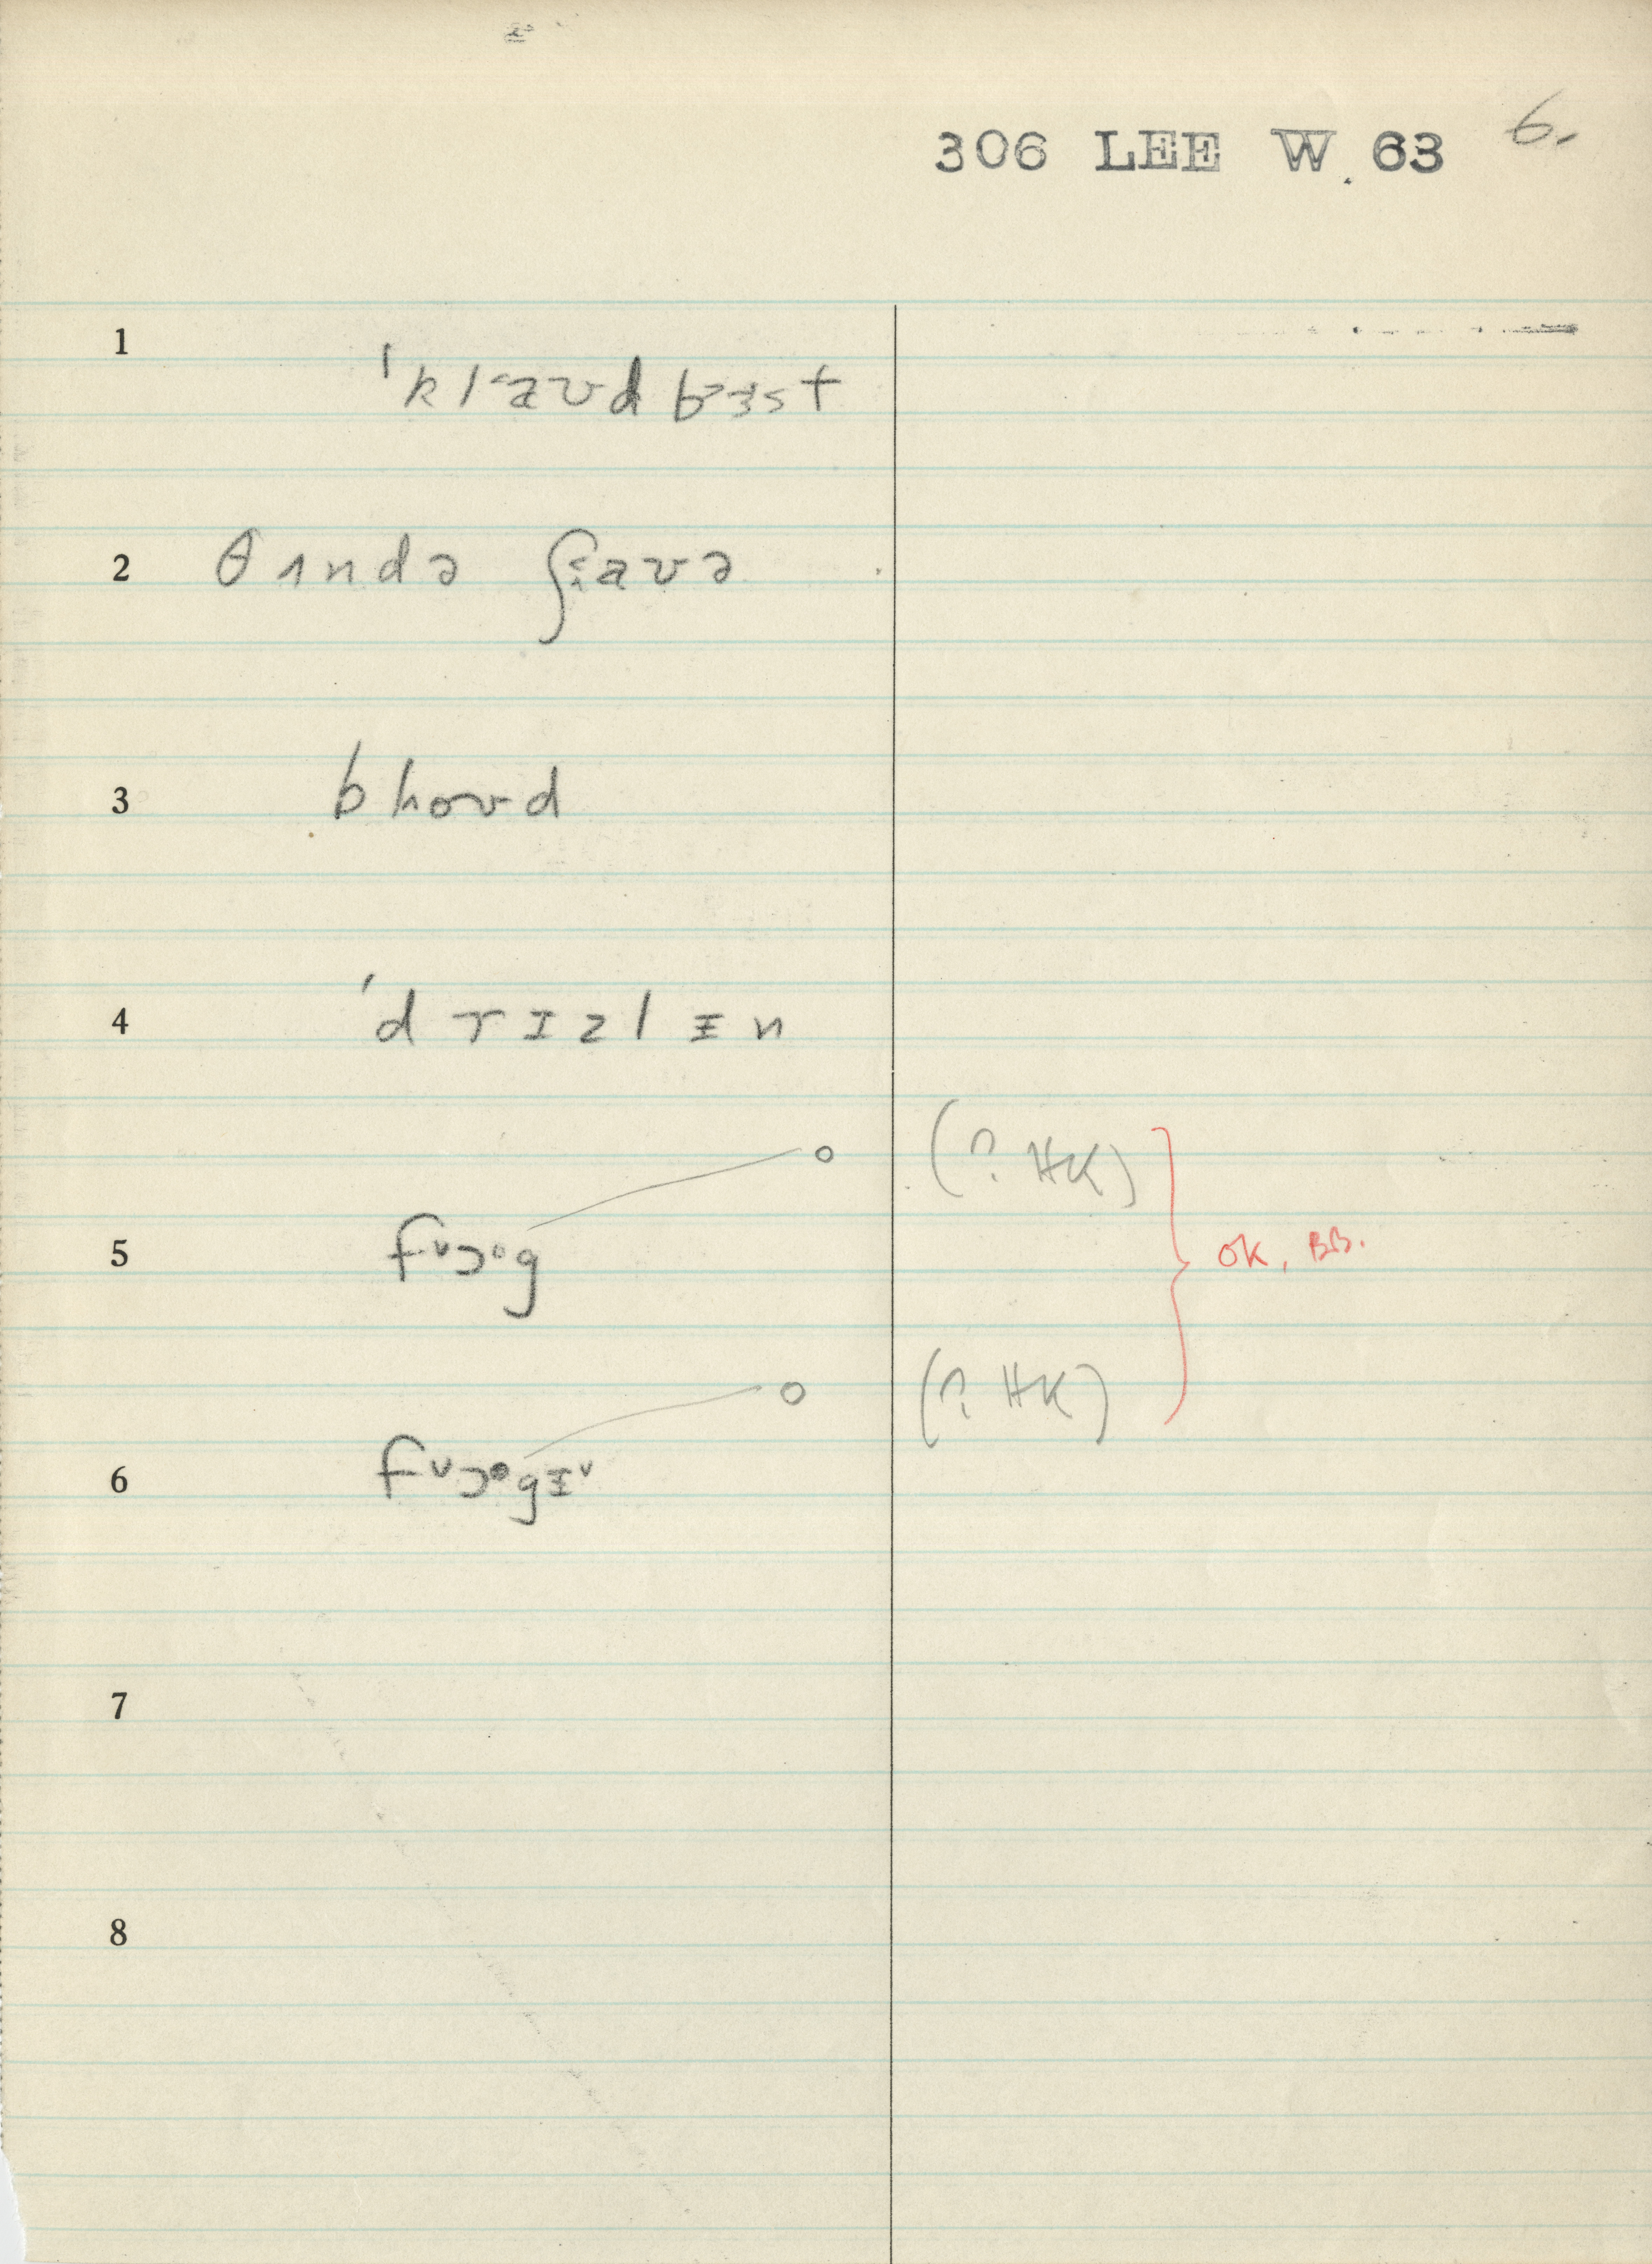 306 LEE W. 63 6.
1 ˈklaʊdbɜst
2 θʌndə ʃaʊə
3 bhoʊd
4 ˈdrɪzlɪn
o (? HK)
5 fᴗɔᵒg OK, BB.
o (? HK)
6 fᴗɔᵒgɪᴗ
7
8